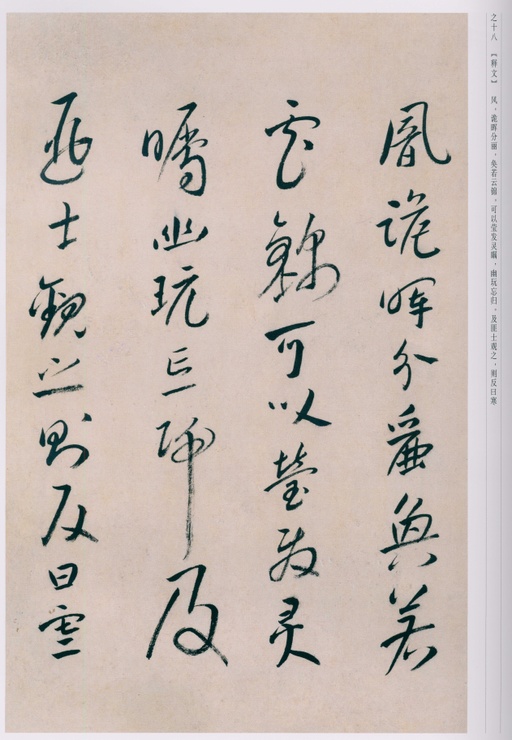 之十八 【释文】 风，诡晖分丽，奂若云锦，可以莹发灵瞩，幽玩忘归。及匪士观之，则反曰寒
風詭暉分麗奐若
雲錦可以瑩發灵
矚幽玩忘歸及
匪士觀之則反曰寒